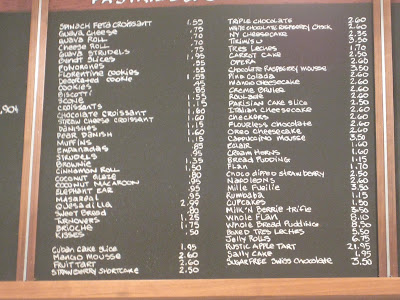 Spinach Feta Croissant 1.55
Guava Cheese .70
Guava Roll .70
Cheese Roll .70
Guava Strudels
Bandt Slices
Polvorones
Florentine Cookies .55
Decorated Cookie
Cookies
Biscotti
Scone
Croissants 1.15
Chocolate Croissant 1.60
Straw Cheese Croissant
Danishes
Pear Danish
Muffins
Empanadas
Strudels
Brownie
Cinnamon Roll 1.50
Coconut Glaze .80
Coconut Macaroon
Elephant Ear .95
Masareal
Quesadilla 2.99
Sweet Bread .80
Turnovers 1.25
Brioche 1.75
Kisses .50
Cuban Cake Slice 1.95
Mango Mousse 2.60
Fruit Tart 2.60
Strawberry Shortcake 2.50
Triple Chocolate 2.60
White Chocolate Raspberry Chsck 2.60
NY Cheesecake 2.35
Tiramisu 3.50
Tres Leches 1.70
Carrot Cake 2.50
Opera 2.60
Chocolate Raspberry Mousse 3.50
Pina Colada 2.60
Mango Cheesecake 2.60
Creme Brulee 2.60
Roulade 2.60
Parisian Cake Slice 2.50
Italian Cheesecake 2.60
Checkers 2.60
Flourless Chocolate 2.60
Oreo Cheesecake 2.60
Cappuccino Mousse 3.50
Eclair 1.60
Cream Horns 1.60
Bread Pudding 1.15
Flan 1.70
Choco Dipped Strawberry 2.50
Napoleons 2.60
Mille Fuille 3.50
Rumbaba 1.15
Cupcakes 1.50
Milk'n Berrie Trifle 3.50
Whole Flan 8.10
Whole Bread Pudding 8.50
Boxed Tres Leches 5.50
Jelly Rolls 6.75
Rustic Apple Tart 21.95
Sally Cake 1.95
Sugarfree Swiss Chocolate 3.50